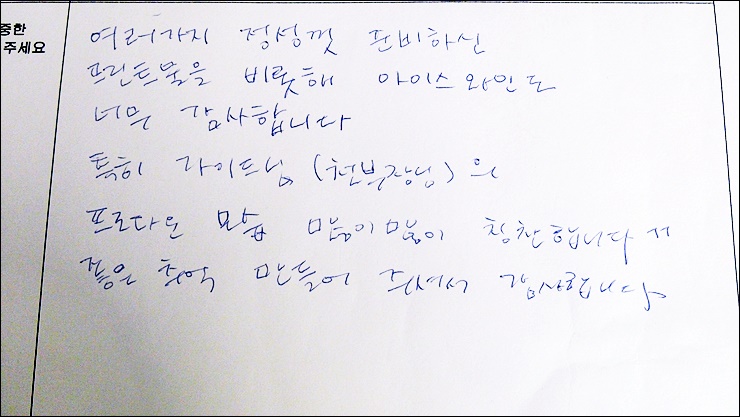 중한
주세요
여러가지 정성껏 준비하신
프린트물을 비롯해 아이스와인도
너무 감사합니다
특히 가이드님 (천부장님) 의
프로다운 모습 많이많이 칭찬합니다
좋은 추억 만들어 주셔서 감사합니다